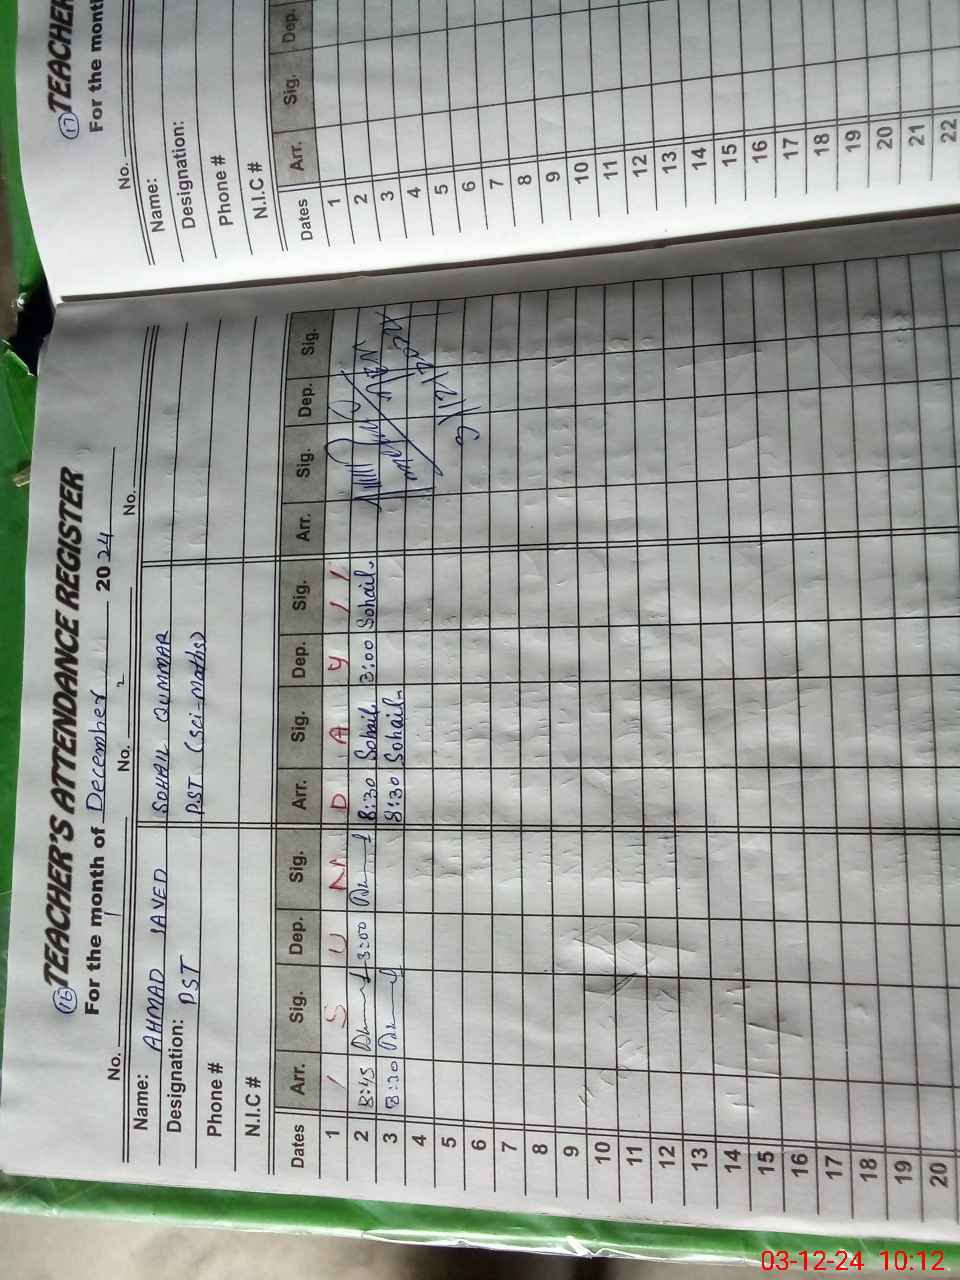 16 TEACHER'S ATTENDANCE REGISTER
For the month of December 2024
No. 1 No. 2 No.
Name: AHMAD JAVED SOHAIL QUMMAR
Designation: PST PST (Sci-Maths)
Phone #
N.I.C #
Dates Arr. Sig. Dep. Sig. Arr. Sig. Dep. Sig. Arr. Sig. Dep. Sig.
1 / S U N D A Y / /
2 8:45 3:00 8:30 Sohail 3:00 Sohail
3 8:30 8:30 Sohail
3/12/2024
4
5
6
7
8
9
10
11
12
13
14
15
16
17
18
19
20
17 TEACHER
For the mont
No.
Name:
Designation:
Phone #
N.I.C #
Dates Arr. Sig. Dep.
1
2
3
4
5
6
7
8
9
10
11
12
13
14
15
16
17
18
19
20
21
22
03-12-24 10:12